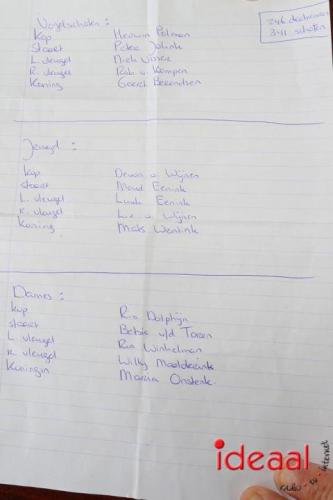 Vogelschieten :
kop Herwin Pelman
staart Peter Jolink
L. vleugel Niek
R. vleugel Rob v. Kempen
Koning Geert Berendsen
246 deelnemers
341 schoten
Jeugd :
kop v. Wijnen
staart Maud Eenink
L. vleugel Luuk Eenink
R. vleugel v. Wijnen
Koning Mats Wentink
Dames :
kop Ria Dolphijn
staart Betsie v/d Toren
L vleugel Ria Winkelman
R. vleugel Willy
Koningin Marcia Onstenk
internet
ideaal